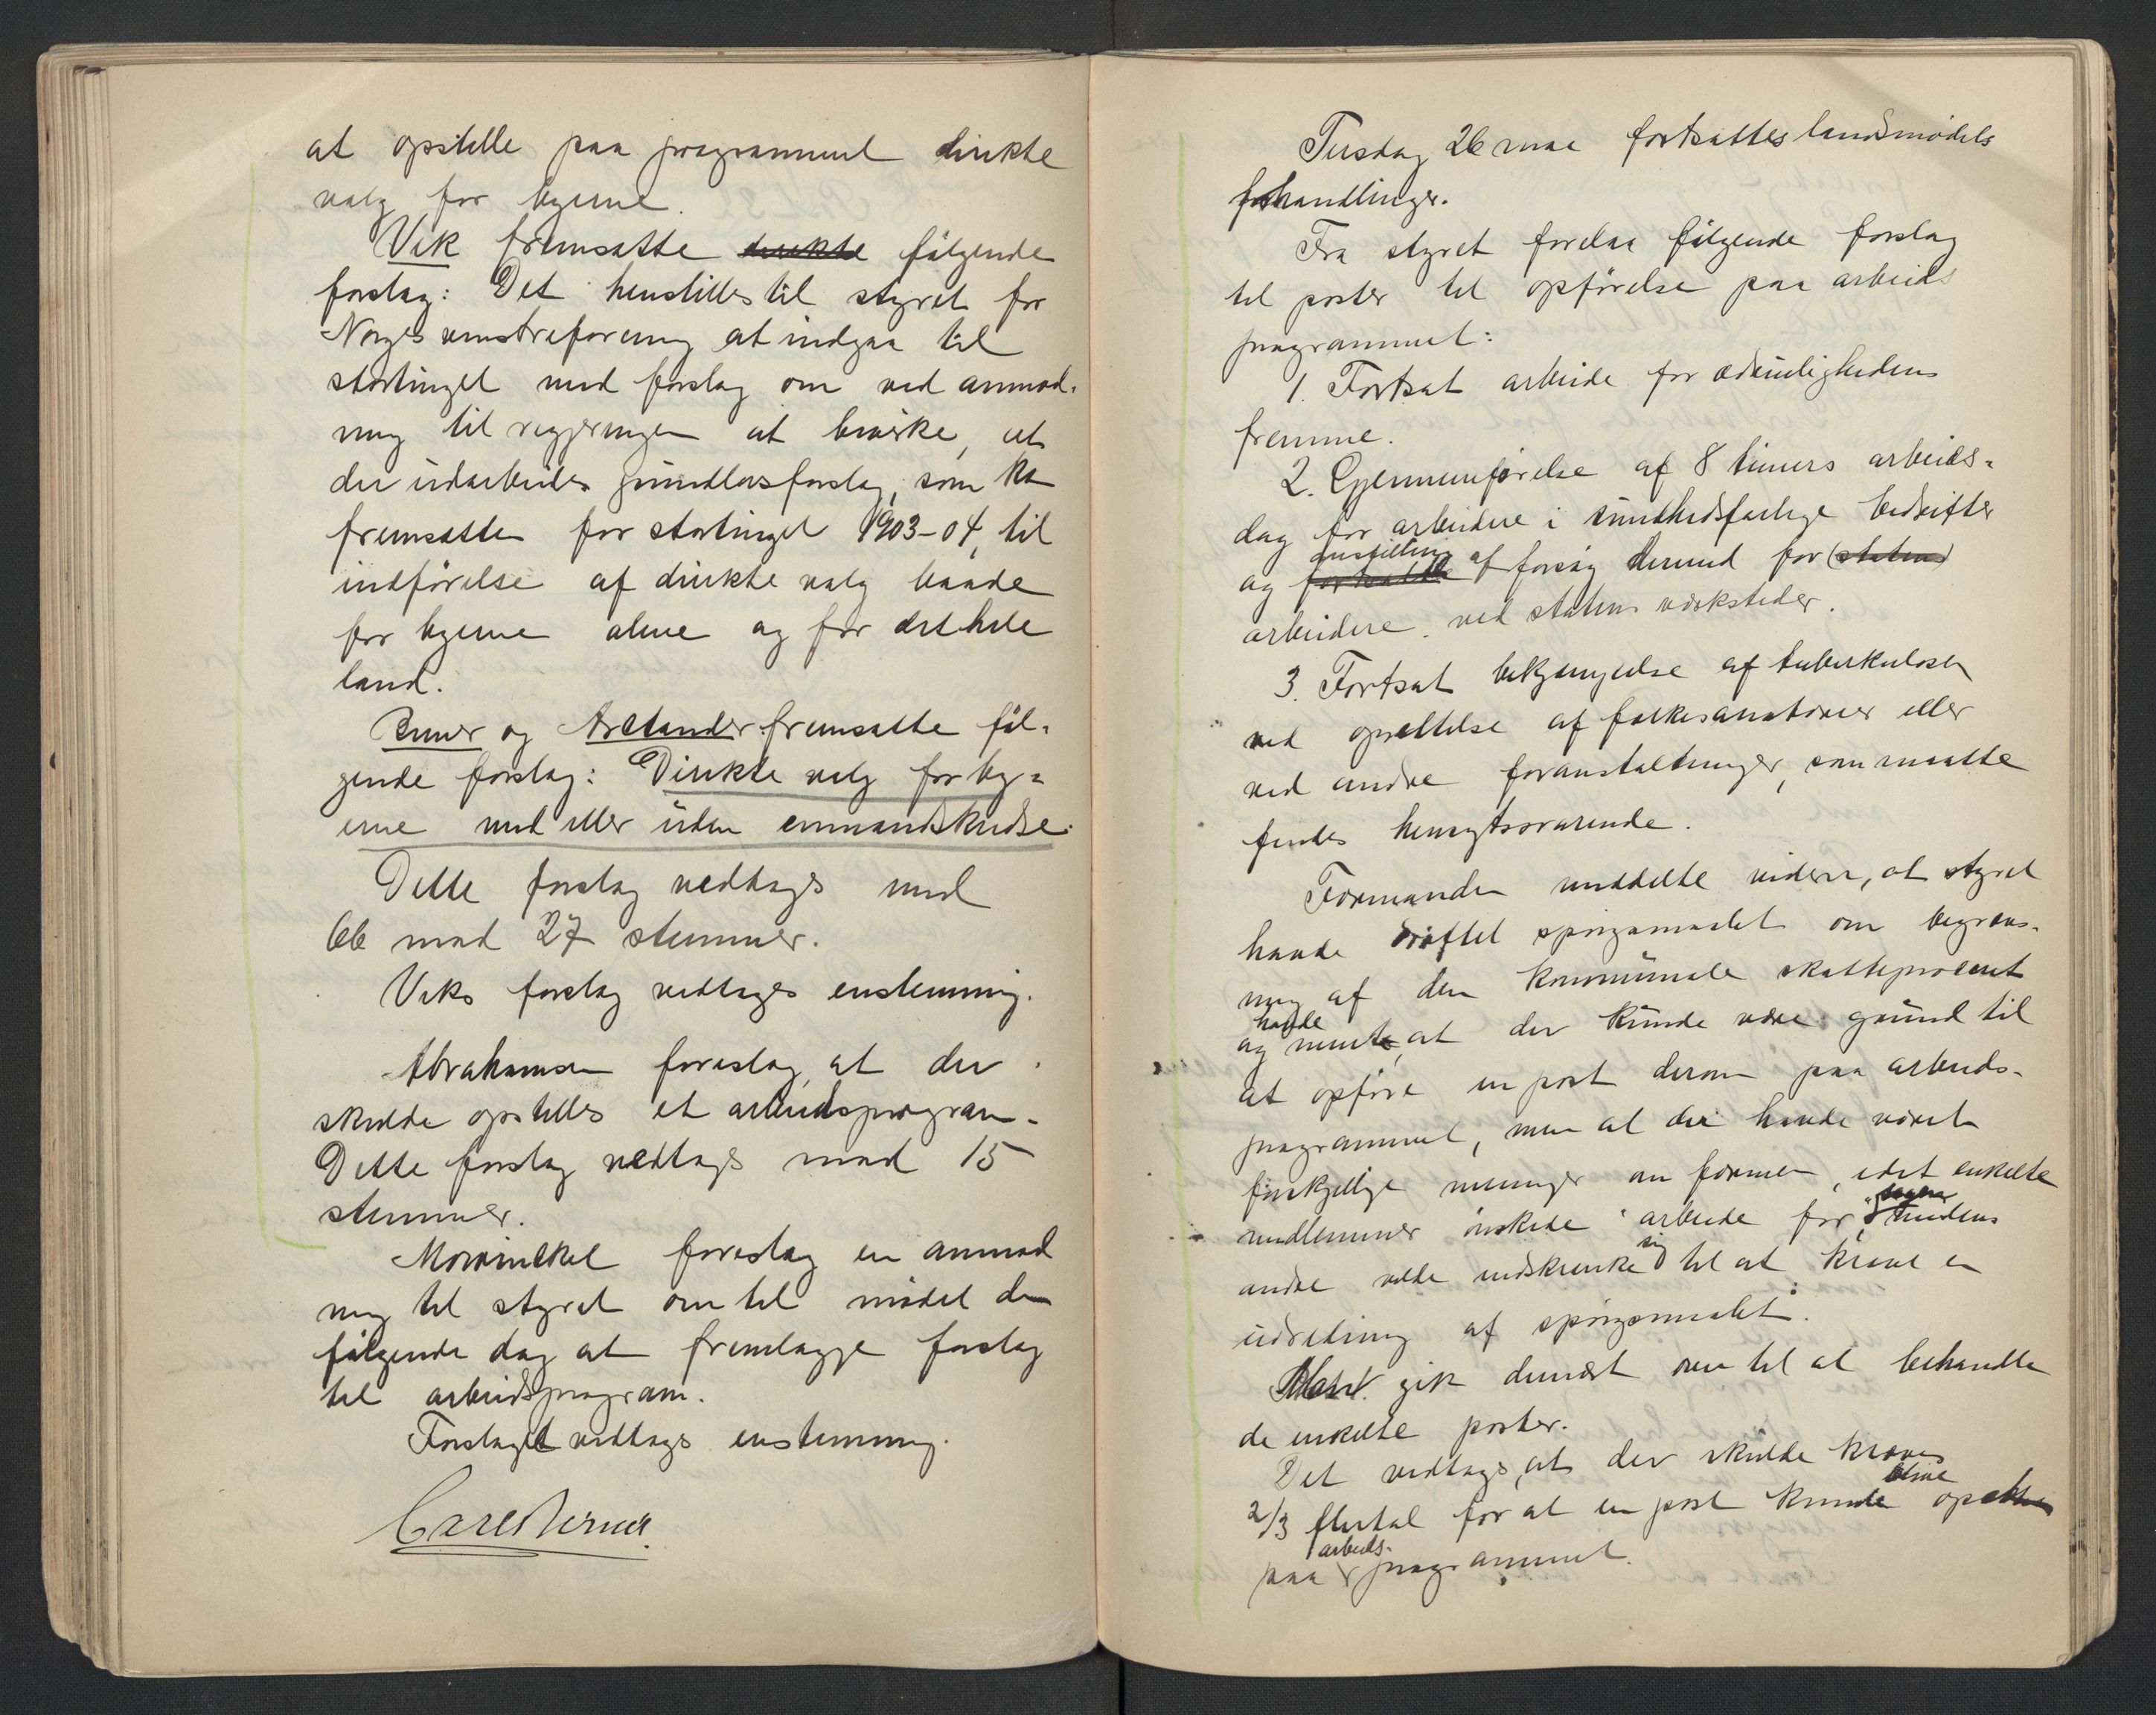 at opstille paa programmet direkte
valg for byerne.
Vik fremsatte direkte følgende
forslag: Det henstilles til styret for
Norges venstreforening at indgaa til
stortinget med forslag om ved anmod-
ning til regjeringen at bevirke, at
der udarbeides grundlovsforslag, som ka
fremsættes for stortinget 1903-04, til
indførelse af direkte valg baade
for byerne alene og for det hele
land.
Berner og Arctander fremsatte føl-
gende forslag: Direkte valg for by-
erne med eller uden enmandskredse.
Dette forslag vedtages med
66 mod 27 stemmer.
Viks forslag vedtages enstemmig.
Abrahamsen foreslog, at der
skulde opstilles et arbeidsprogram.
Dette forslag vedtages mod 15
stemmer.
Mowinckel foreslog en anmod
ning til styret om til mødet den
følgende dag at fremlægge forslag
til arbeidsprogram.
Forslaget vedtages enstemmig.
Carl Berner.
Tirsdag 26 mai fortsattes landsmødets
forhandlinger.
Fra styret forelaa følgende forslag
til poster til opførelse paa arbeids
programmet:
1. Fortsat arbeide for ædruelighedens
fremme.
2. Gjennemførelse af 8 timers arbeids-
dag for arbeidere i sundhedsfarlige bedrifter
og anstilling af forsøg dermed for (staten)
arbeidere ved statens værksteder.
3. Fortsat bekjæmpelse af tuberkulosen
ved oprettelse af folkesanatorier eller
ved andre foranstaltninger, som maatte
findes hensigtssvarende.
Formanden meddelte videre, at styret
havde drøftet spørgsmaalet om begræns-
ning af den kommunale skatteprocent
og havde ment, at der kunde være grund til
at opføre en post derom paa arbeids-
programmet, men at der havde været
forskjellige meninger om formen, idet enkelte
medlemmer ønskede arbeide for
andre vilde indskrænke sig til at kræve en
udredning af spørgsmaalet.
gik dernæst over til at behandle
de enkelte poster.
Det vedtages, at der skulde kræves
2/3 flertal for at en post kunde blive
paa arbeids-programmet.